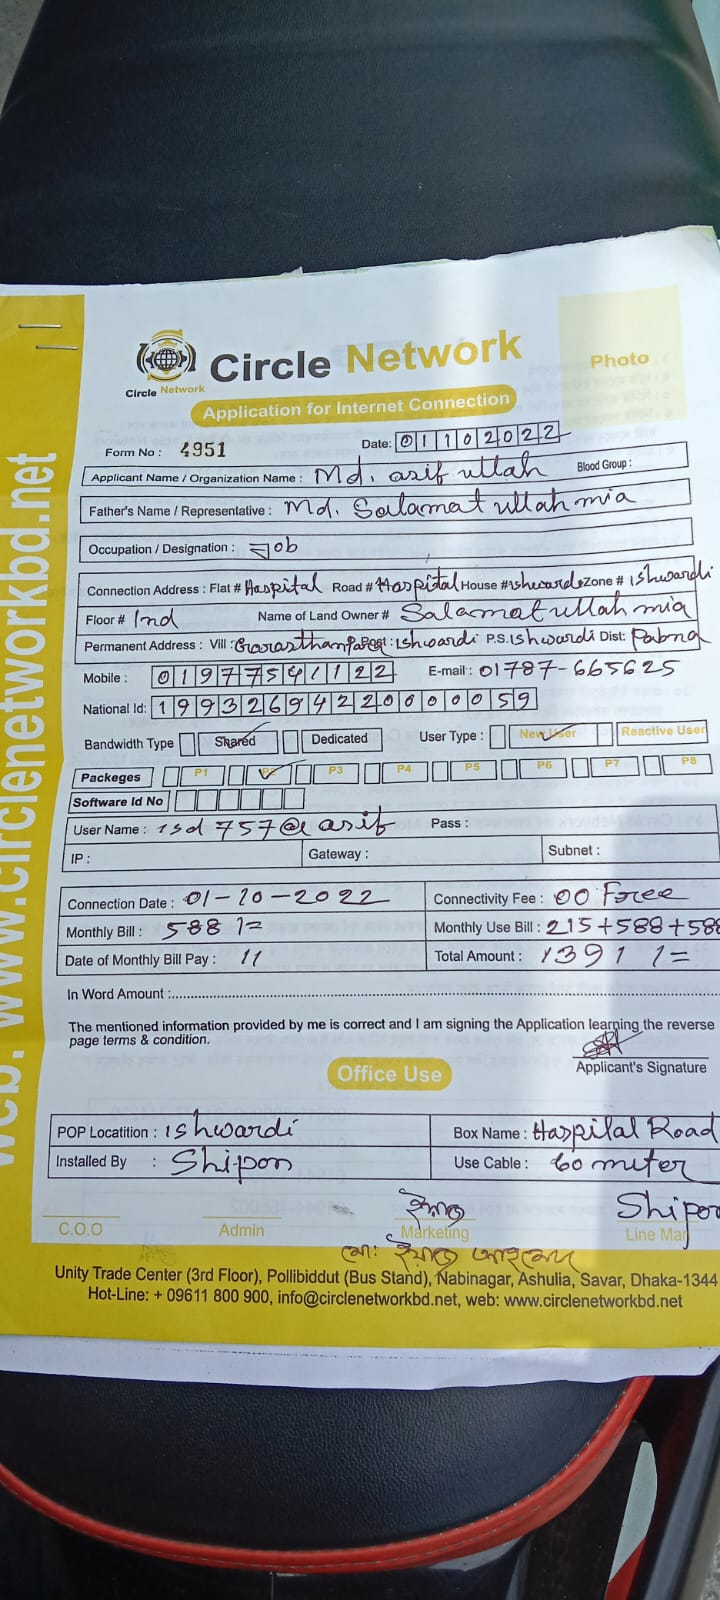 Circle Network
Circle Network
Photo
Application for Internet Connection
Form No : 4951 Date: 01102022
Applicant Name / Organization Name : Md. asif ullah Blood Group :
Father's Name / Representative : Md. Salamat ullah mia
Occupation / Designation : Job
Connection Address : Flat # Haspital Road # Haspital House # ishwardi Zone # ishwardi
Floor # Ind Name of Land Owner # Salamat ullah mia
Permanent Address : Vill : Post : Ishwardi P.S. Ishwardi Dist: Pabna
Mobile : 01977541122 E-mail : 01787-665625
National Id: 19932694220000059
Bandwidth Type Shared Dedicated User Type : New User Reactive User
Packeges P1 P2 P3 P4 P5 P6 P7 P8
Software Id No
User Name : isd 757@ asif Pass :
IP : Gateway : Subnet :
Connection Date : 01-10-2022 Connectivity Fee : 00 Free
Monthly Bill : 588 /= Monthly Use Bill : 215+588+588
Date of Monthly Bill Pay : 11 Total Amount : 1391 /=
In Word Amount :
The mentioned information provided by me is correct and I am signing the Application learning the reverse
page terms & condition.
Applicant's Signature
Office Use
POP Locatition : ishwardi Box Name : Haspital Road
Installed By : Shipon Use Cable : 60 miter
Shipon
C.O.O Admin Marketing Line Man
Unity Trade Center (3rd Floor), Pollibiddut (Bus Stand), Nabinagar, Ashulia, Savar, Dhaka-1344
Hot-Line: + 09611 800 900, info@circlenetworkbd.net, web: www.circlenetworkbd.net
web: www.circlenetworkbd.net